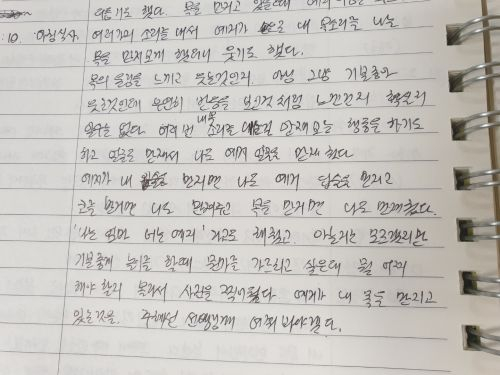 어깨도 했다. 목을 만지고 있을때
:10. 아침식사 여러가지 소리를 내서 예지가 손을 내 목소리를 나는
목을 만지보게 했더니 웃기도 했다.
목의 울림을 느끼고 웃는것인지 아님 그냥 기분좋아
웃는것인데 우연히 반응을 보인것 처럼 느낀건지 확실히
알수는 없다. 여러번 내목 소리를 내는걸 만져보는 행동을 하기도
하고 얼굴을 만져서 나도 예지 얼굴을 만져 줬다.
예지가 내 입술을 만지면 나도 예지 입술을 만지고
코를 만지면 나도 만져주고 목을 만지면 나도 만져줬다.
'나는 엄마 너는 예지' 라고도 해줬고. 아는지는 모르겠지만
기분좋게 놀이를 할때 뭔가를 가르치고 싶은데 뭘 어찌
해야 할지 몰라서 사진을 찍어뒀다. 예지가 내 목을 만지고
있는것을. 주혜선 선생님께 여쭤 봐야겠다.